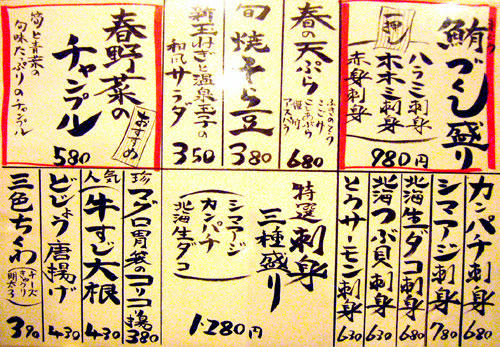 鮪づくし盛り
一押し
ハラミ刺身
ホホミ刺身
赤身刺身
980円
春の天ぷら
ふきのとう
こごみ
たらの芽
アスパラ
680
旬焼そら豆
380
新玉ねぎと温泉玉子の
和風サラダ
350
春野菜の
チャンプル
おすすめ
筍と青菜の
旬味たっぷりのチャンプル
580
カンパチ刺身
680
シマアジ刺身
780
北海生ダコ刺身
680
北海つぶ貝刺身
680
とろサーモン刺身
630
特選刺身
三種盛り
シマアジ
カンパチ
北海生ダコ
1.280円
珍
マグロ胃袋のコロコロ揚
380
人気
牛すじ大根
430
どじょう唐揚げ
430
三色ちくわ
チーズ
きゅうり
明太子
390